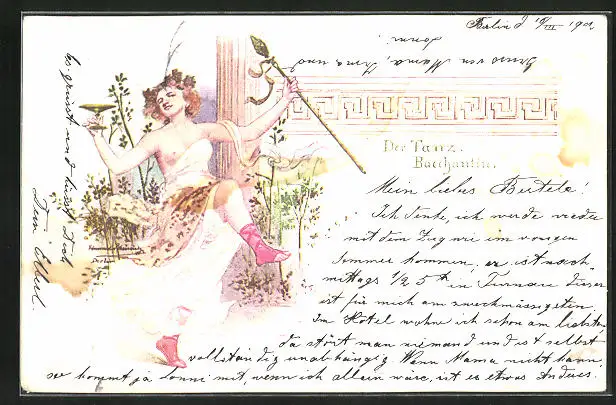 Berlin d 19/III 1902
Der Tanz.
Bacchantin.
Mein liebes Bertele!
Ich denke, ich werde wieder
mit dem Zug wie im vorigen
Sommer kommen, er ist nach-
mittags 1/2 5h in Dieser
ist für mich am zweckmässigsten.
Im Hotel wohne ich schon am liebsten
da stört man niemand und ist selbst
vollständig unabhängig. Wenn Mama nicht kann,
so kommt ja Lonni mit, wenn ich allein wäre, ist es etwas Anderes.
Es grüsst und küsst Dich
Dein
Gruss von Mama, und